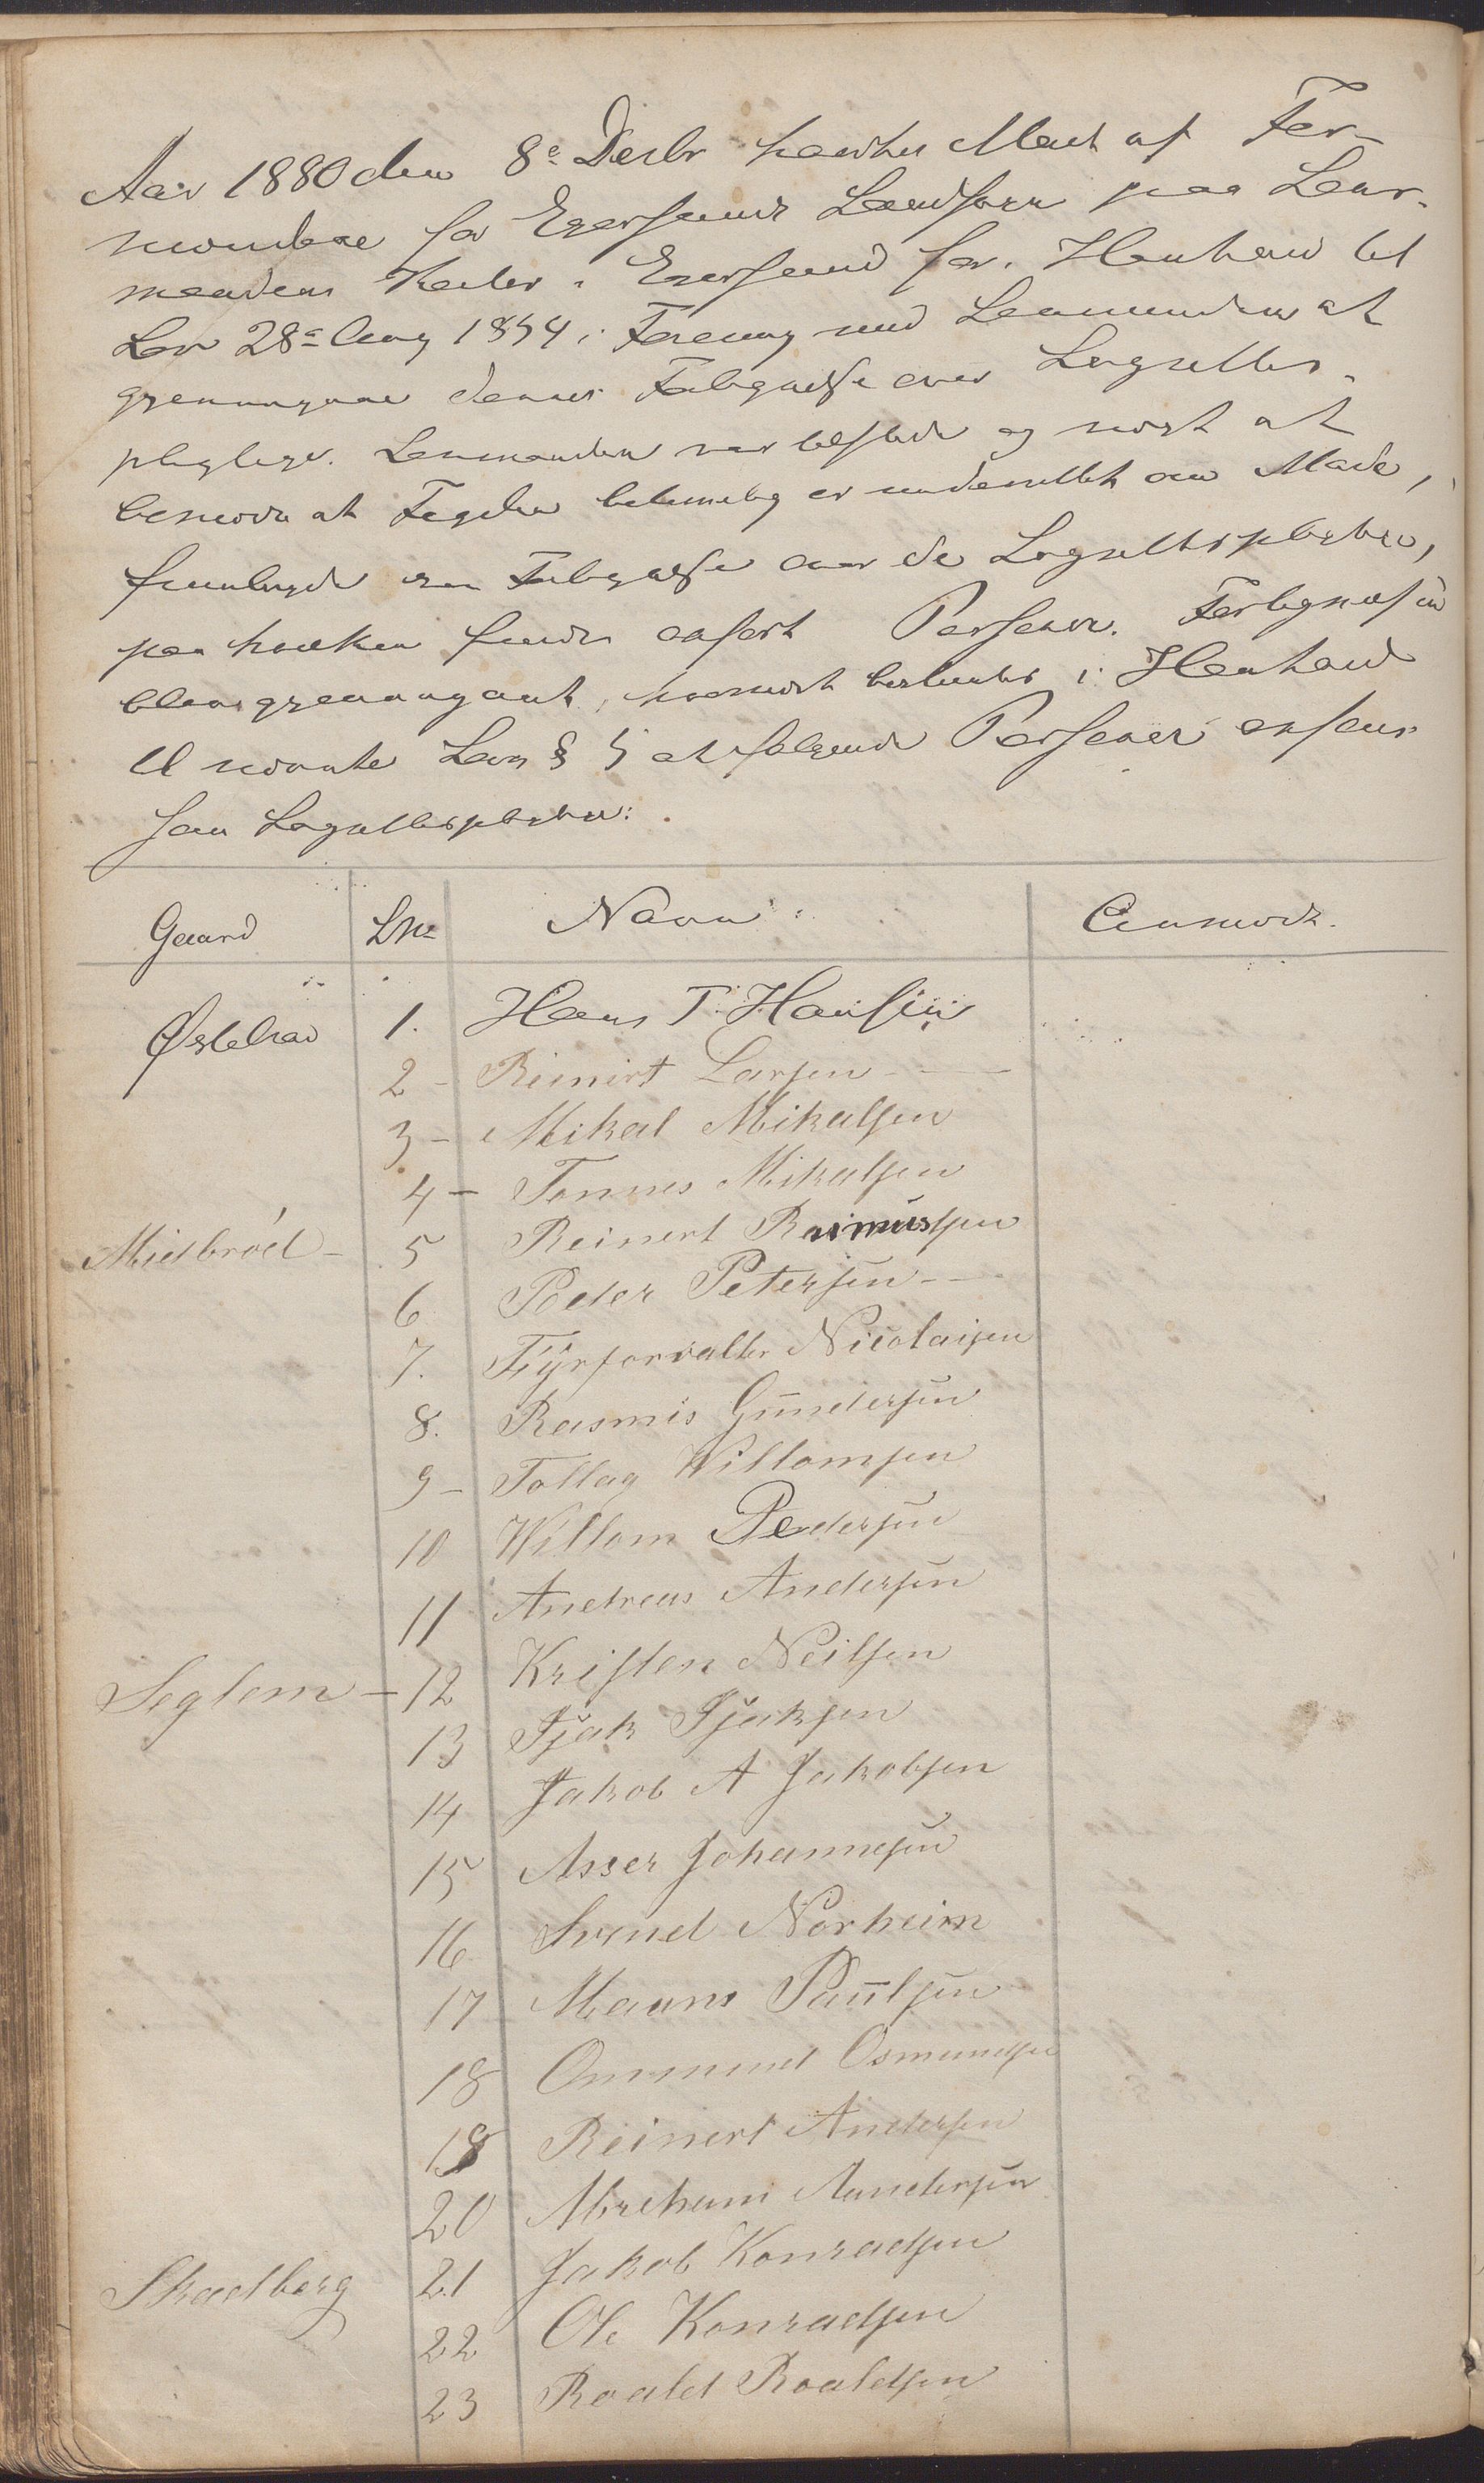 Aar 1880 den 8e Decbr holdtes Møde af For-
mændene for Egersunds Landsogn paa Lens-
mandens Kontor i Egersund for i Henhold til
Lov 28e Aug 1854 i Forening med Lensmanden at
gjennemgaa dennes Fortegnelse over Lægdsrets-
pligtige. Lensmanden var tilstede og
at Fogden betimelig er underrettet om Møde,
fremlagde en Fortegnelse over de
paa hvilken findes opført Personer. Fortegnelsen
blev gjennemgaaet, hvornæst besluttes i Henhold
til nævnte Lov § 5 at følgende Personer opføres
som
Gaard LNo Navn: Anmærk.
Østebrød 1. Hans T. Hansen
2 - Reinirt Larsen
3 - Mikal Mikalsen
4 - Tonnes Mikalsen
Midbrød - 5 Reinert Rasmussen
6 Peder Petersen
7. Fyrforvalter Nicolaisen
8. Rasmis Gundersen
9 - Tollag Willomsen
10 Willom Pedersen
11 Andreas Andersen
Seglem - 12 Kristen Neilsen
13 Tjak Tjaksen
14 Jakob A Jakobsen
15 Asser Johannesen
16 Svend Norheim
17 Mauns Paulsen
18 Ommund Osmundsen
19 Reinert Andersen
20 Abreham Aandersen
Skadberg 21 Jakob Konradsen
22 Ole Konradsen
23 Roald Roaldsen